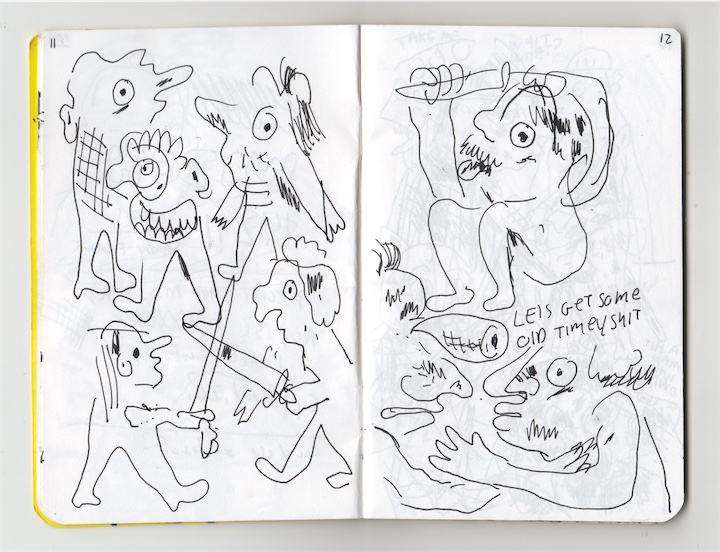 11
12
LETS GET SOME
OLD TIMEY SHIT